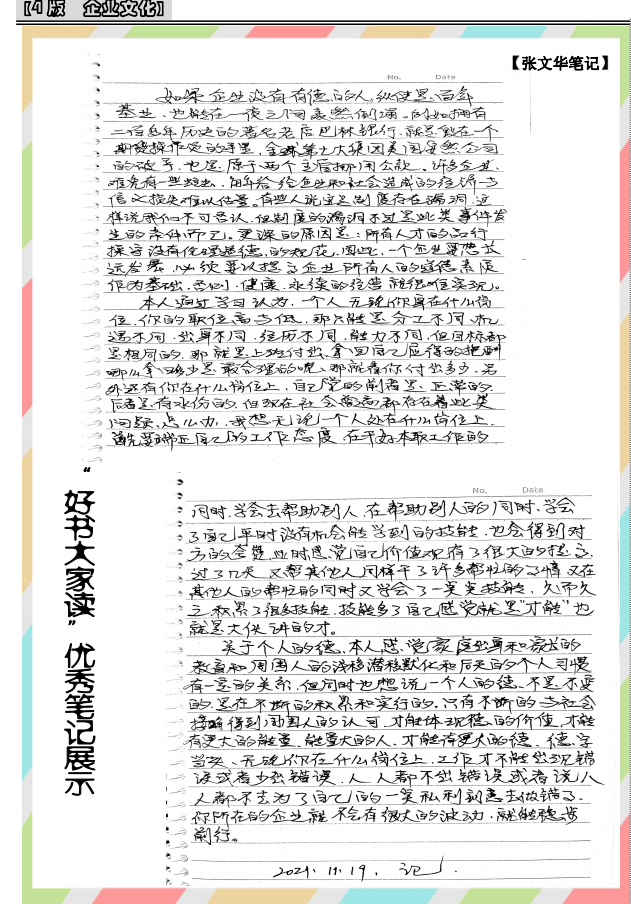 【4版 企业文化】
【张文华笔记】
No. Date
如果企业没有有德的人,纵使是百年
基业,也能在一夜之间轰然倒塌。例如拥有
二百年历史的著名老店巴林银行,就是毁在一个
期货操作员的手里,全球第七大集团美国安然公司
的破产,也是原于两个主管挪用公款。许多企业
难免有一些蛀虫,
信文损失难以估量。有些人说这是制度存在漏洞,这
样说我们不可否认,但制度的漏洞不过是此类事件发
生的条件而已。更深的原因是:所有人才的品行
操守没有伦理道德的规范,因此,一个企业要想长
远发展,必须要以提高企业所有人的道德素质
作为基础,否则,健康、永续的经营就很难实现。
本人通过学习认为,一个人无论你身在什么岗
位,你的职位高与低,那只能是分工不同,机
遇不同,出身不同,经历不同,能力不同,但目标都
是相同的,那就是上班付出,拿回自己应得的报酬
哪么拿回多少是最合理的呢,那就看你付出多少,另
外还有你在什么岗位上,自己觉的前者是正常的,
后者是有水份的,但现在社会普遍都存在着此类
问题,怎么办,我想无论一个人处在什么岗位上,
首先要端正自己的工作态度,在干好本职工作的
No. Date
同时,学会去帮助别人,在帮助别人的同时,学会
了自己平时没有机会能学到的技能,也会得到对
方的会赞,此时感觉自己价值观有了很大的提高,
过了几天,又帮其他人同样干了许多帮忙的事情,又在
其他人的帮忙的同时又学会了一些技能,久而久
之积累了很多技能,技能多了自己感觉就是“才能”也
就是大伙讲的才。
关于个人的德,本人感觉家庭出身和家长的
教育和周围人的浅移潜移默化和后天的个人习惯
有一定的关系,但同时也想说一个人的德,不是不变
的,是在不断的积累和实行的,只有不断的与社会
接触得到周围人的认可,才能体现德的价值,才能
有更大的能量,能量大的人,才能有更大的德,德字
当头,无论你在什么岗位上,工作才不能出现错
误或者少出错误,人人都不出错误或者说人
人都不去为了自己的一点私利刻意去做错事,
你所在的企业就不会有很大的波动,就能稳步
前行。
2021.11.19. 记
“好书大家读”优秀笔记展示